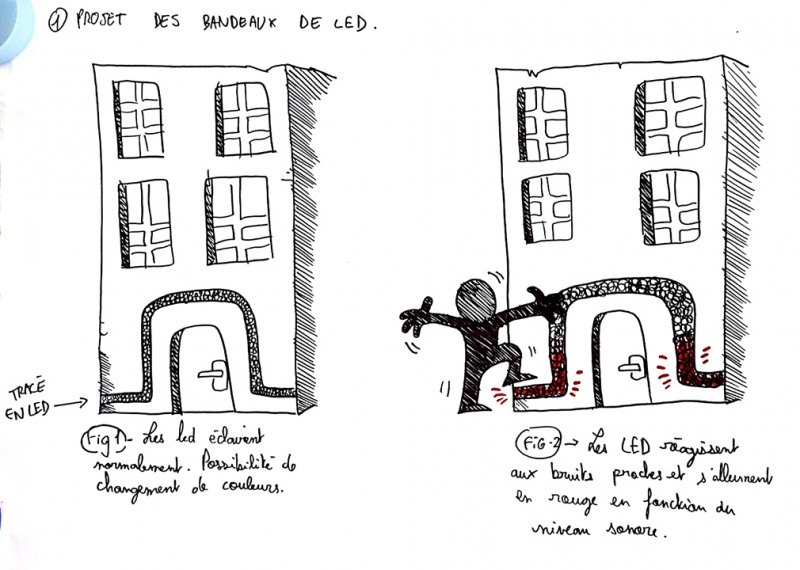 ① PROJET DES BANDEAUX DE LED.
TRACÉ
EN LED →
Fig 1 - Les led éclairent
normalement. Possibilité de
changement de couleurs.
FIG. 2 → Les LED réagissent
aux bruits proches et s'allument
en rouge en fonction du
niveau sonore.